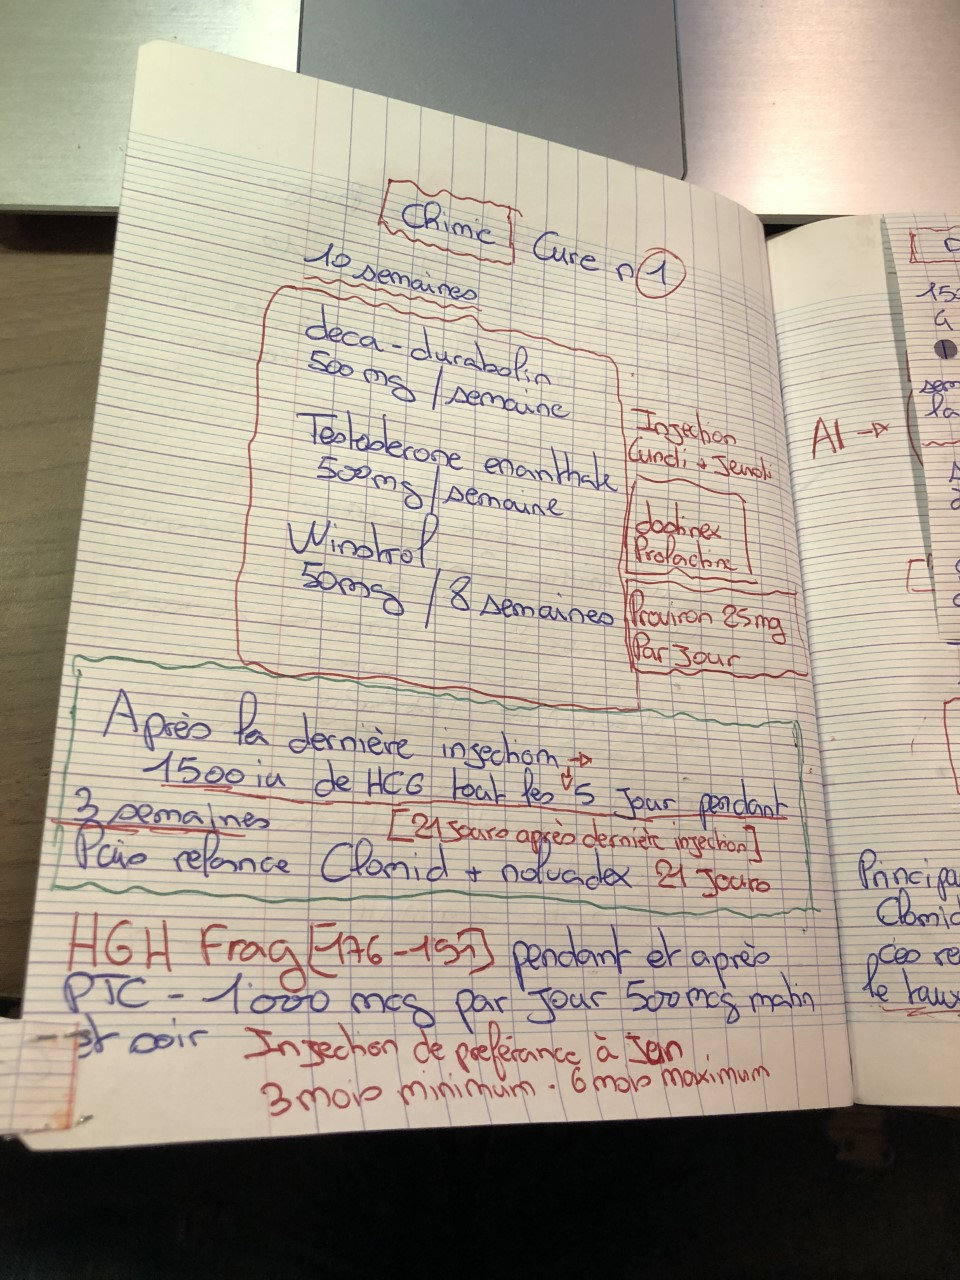 Chimie Cure n 1
10 semaines
deca-durabolin
500 mg / semaine
Testosterone enanthate
500mg / semaine
Winstrol
50mg / 8 semaines
Injection
Lundi + Jeudi
dostinex
Prolactine
Proviron 25mg
Par Jour
Après la dernière injection →
1500 iu de HCG tout les 5 Jour pendant
3 semaines [21 jours après dernière injection]
Puis relance Clomid + nolvadex 21 Jours
HGH Frag [176-191] pendant et après
PTC - 1000 mcg par Jour 500mcg matin
et soir Injection de préférance à Jen
3 mois minimum - 6 mois maximum
AI →
150
la
Principa
Clomid
ces re
le taux